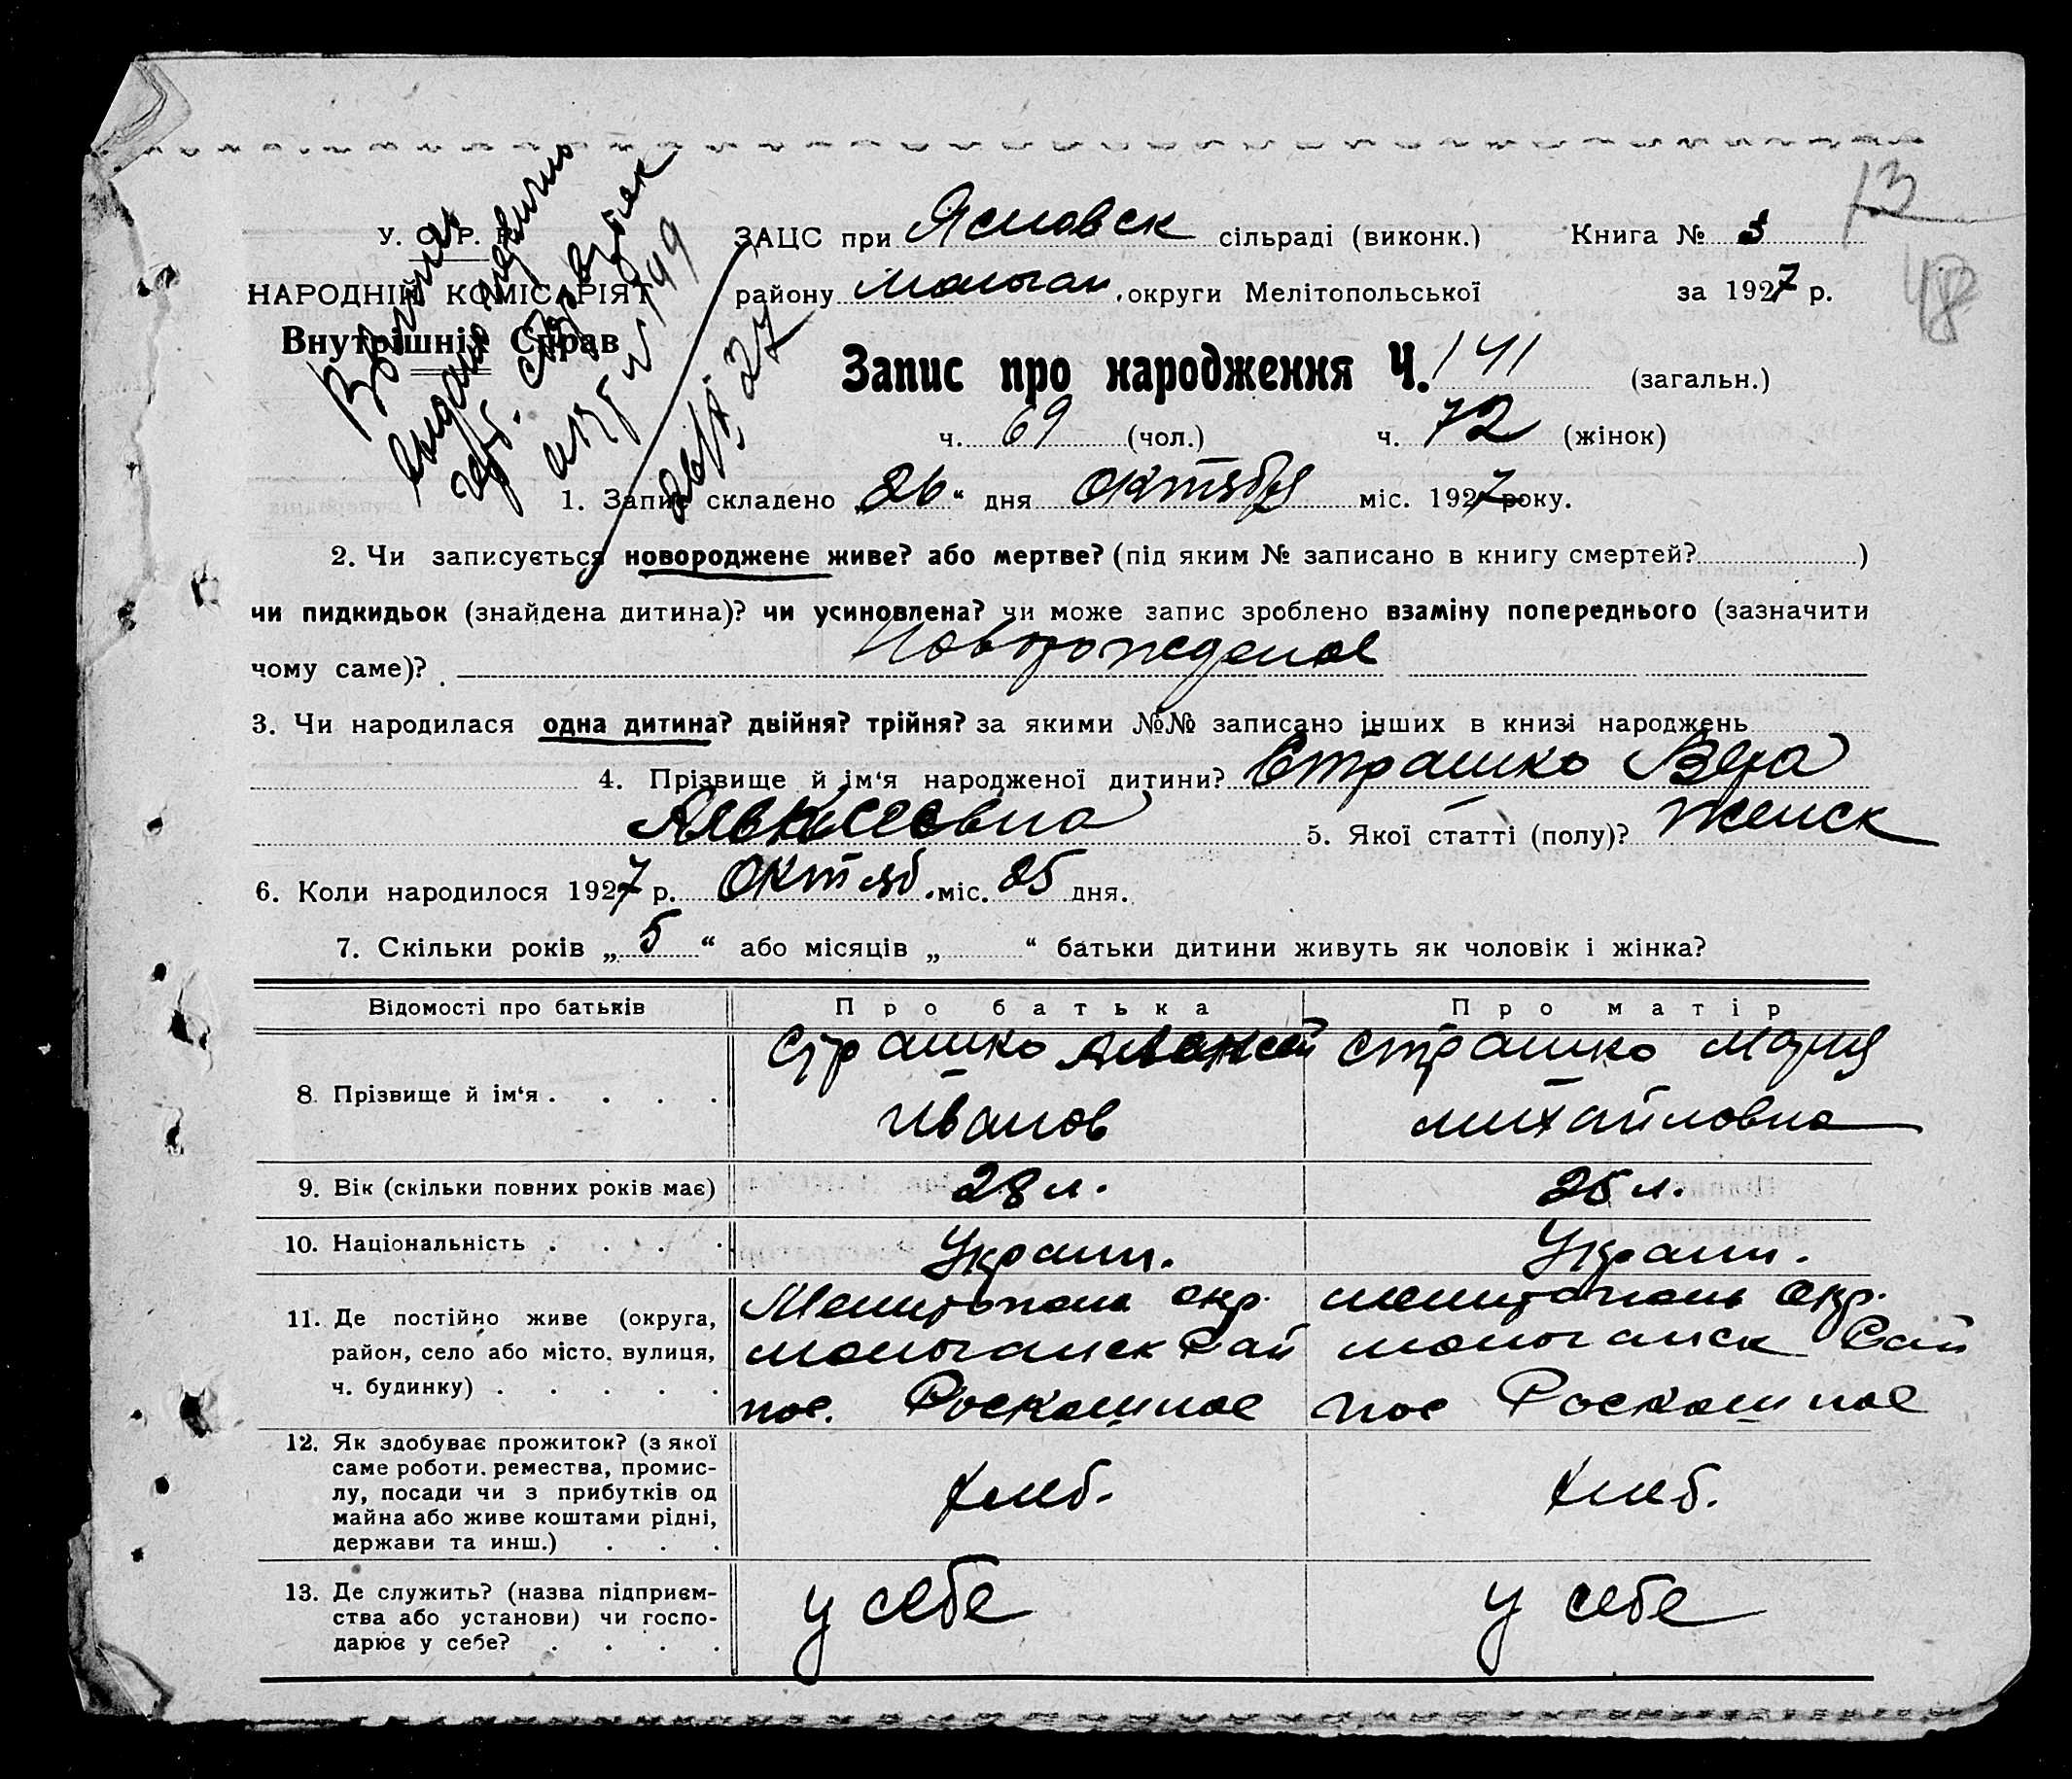 13
48
У. С. Р. Р.
НАРОДНІЙ КОМІСАРІЯТ
Внутрішніх Справ
Выпись
выдана
26/X 27
ЗАЦС при Ясновск сільраді (виконк.) Книга № 3
району Молочан. округи Мелітопольської за 1927 р.
Запис про народження Ч. 141 (загальн.)
ч. 69 (чол.) ч. 72 (жінок)
1. Запис складено „26“ дня Октября міс. 1927 року.
2. Чи записується новороджене живе? або мертве? (під яким № записано в книгу смертей? )
чи пидкидьок (знайдена дитина)? чи усиновлена? чи може запис зроблено взаміну попереднього (зазначити
Новорожденое
чому саме)?
3. Чи народилася одна дитина? двійня? трійня? за якими №№ записано інших в книзі народжень
4. Прізвище й ім‘я народженої дитини? Страшко Вера
Алексеевна 5. Якої статті (полу)? Женск
6. Коли народилося 1927 р. Октяб. міс. 25 дня.
7. Скільки років „5“ або місяців „ “ батьки дитини живуть як чоловік і жінка?
Відомості про батьків Про батька Про матір
8. Прізвище й ім‘я . . . . Страшко Алексей Страшко Мария
Иванов Михайловна
9. Вік (скільки повних років має) 28 л. 25 л.
10. Національність . . . . Украин. Украин.
11. Де постійно живе (округа, район, село або місто, вулиця, ч. будинку) . . . . . Мелитополь окр. Мелитополь окр.
Молочанск Рай Молочанск Рай
пос. Роскошное пос Роскошное
12. Як здобуває прожиток? (з якої
саме роботи. ремества, промис-
лу, посади чи з прибутків од
майна або живе коштами рідні,
держави та инш.) . . .
хлеб. хлеб.
13. Де служить? (назва підприєм-
ства або установи) чи госпо-
дарює у себе? . . . .
у себе у себе